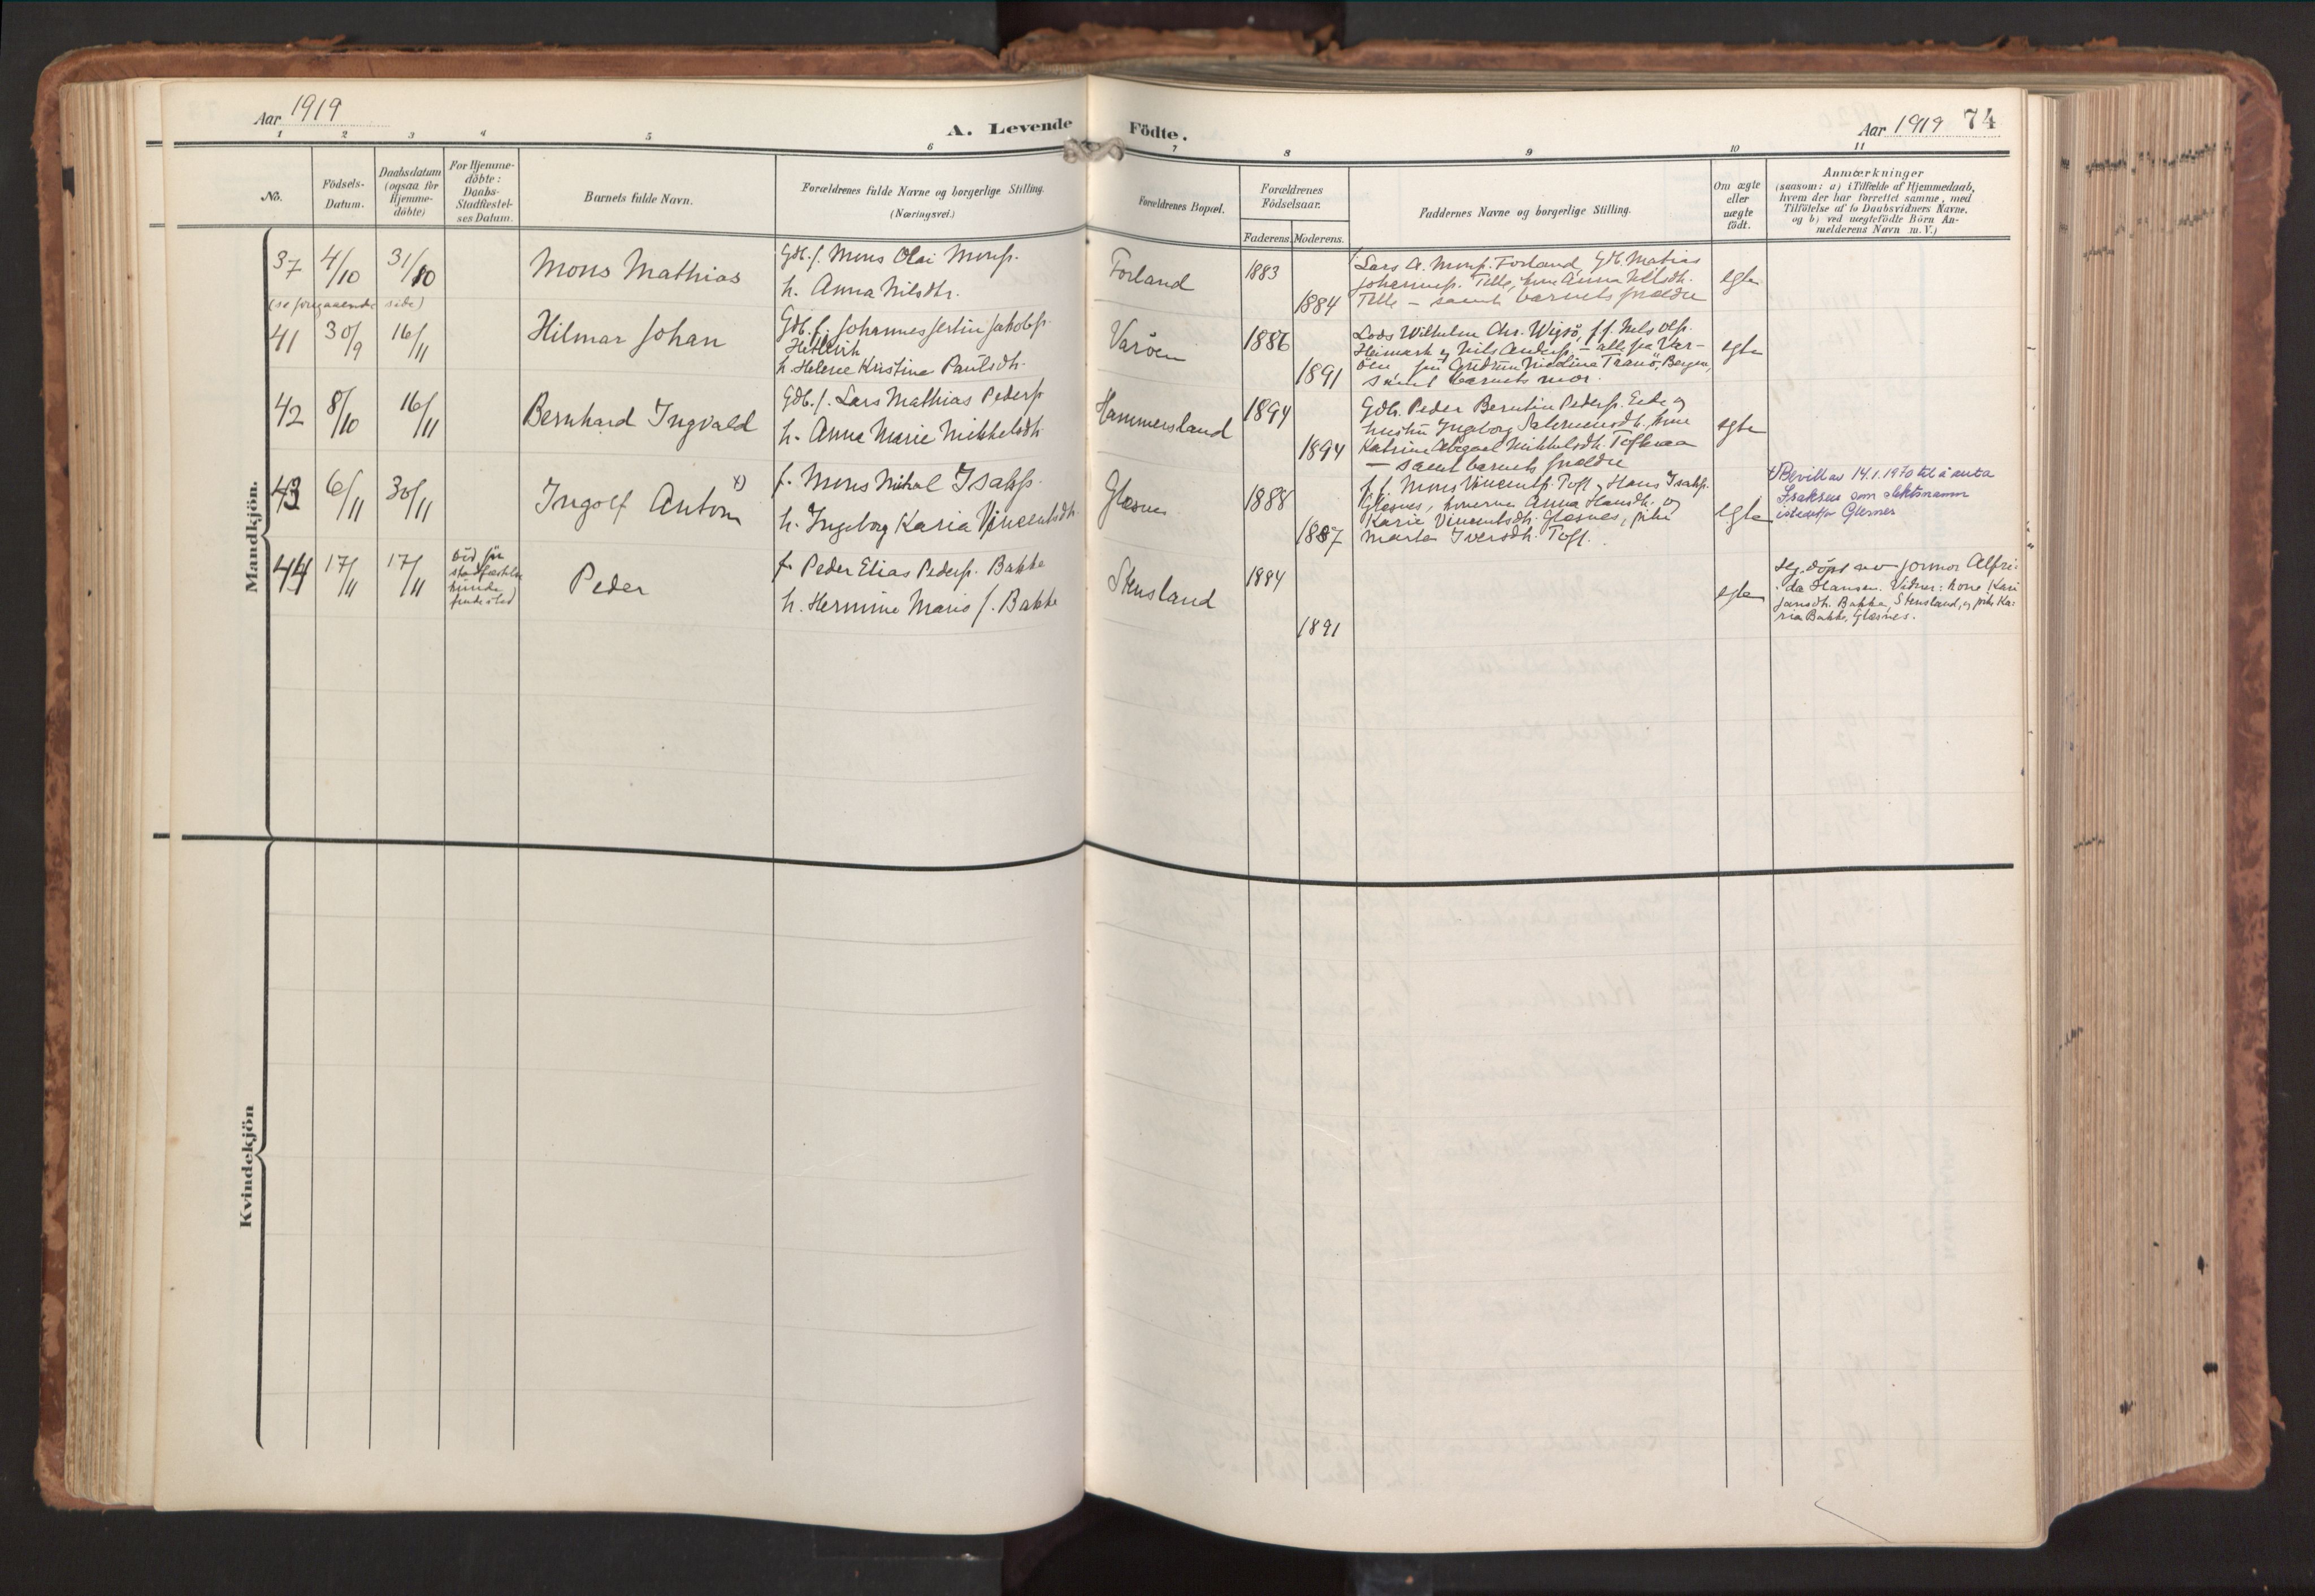 Aar 1919
A. Levende Födte.
Aar 1919 74
1 2 3 4 5 6 7 8 9 10 11
No.
Födsels-
Datum.
Daabsdatum
(ogsaa for
Hjemme-
döbte)
For Hjemme-
döbte:
Daabs-
Stadfestel-
ses Datum.
Barnets fulde Navn.
Forældrenes fulde Navne og borgerlige Stilling.
(Næringsvei.)
Forældrenes Bopæl.
Forældrenes
Födselsaar.
Faderens. Moderens.
Faddernes Navne og borgerlige Stilling.
Om ægte
eller
uægte
födt.
Anmærkninger
(saasom: a) i Tilfælde af Hjemmedaab,
hvem der har forrettet samme, med
Tilföielse af to Daabsvidners Navne,
og b) ved uægtefödte Börn An-
melderens Navn m. V.)
Mandkjön.
37 4/10 31/10 Mons Mathias
Gdb. f. Mons Olai Monss.
h. Anna Nilsdtr.
Forland 1883
1884
Lars A. Monss. Forland, Gdb. Matias
Johanness. Telle, kone Anna Nilsdtr.
Telle – samt barnets foreldre
egte
(se foregaaende side)
41 30/9 16/11 Hilmar Johan
Gdb. f. Johannes Jertin Jakobss.
h. Helene Kristine Paulsdtr.
Varöen 1886
1891
Lods Wilhelm Chr. Wigsö, f. f. Nels Olss.
Heimark og Nils Anderss. – alle fra Var-
öen Bergen,
samt barnets mor.
egte
42 8/10 16/11 Bernhard Ingvald
Gdb. f. Lars Mathias Pederss.
h. Anna Marie Mikkelsdtr.
Hammersland 1894
1894
Gdb. Peder Berntin Pederss. Eide og
hustru Ingeborg Salomonsdtr., kone
Katrine Abigael Mikkelsdtr. Toftevaa
– samt barnets foreldre
egte
43 6/11 30/11 Ingolf Anton x)
f. Mons Mikal Isakss.
h. Ingeborg Karia Vincentsdtr.
Glesnes 1888
1887
f. f. Mons Vincentss. Toft, Hans Isakss.
Glesnes, konerne Anna Hansdtr. og
Karie Vincentsdtr. Glesnes, pike
Marta Iversdtr. Toft.
egte
x) Bevill. av 14.1.1970 til å anta
Isaksen som slektsnamn
istedenfor Glesnes
44 17/11 17/11
död för
stadfæstelse
kunde
finde sted
Peder
f. Peder Elias Pederss. Bakke
h. Hermine Marie f. Bakke
Stensland 1884
1891
egte
Hj. döpt av jormor Alfri-
da Hansen. Vidner: kone Kari
Jansdtr. Bakke, Stensland, og pike Ka-
ria Bakke, Glesnes.
Kvindekjön